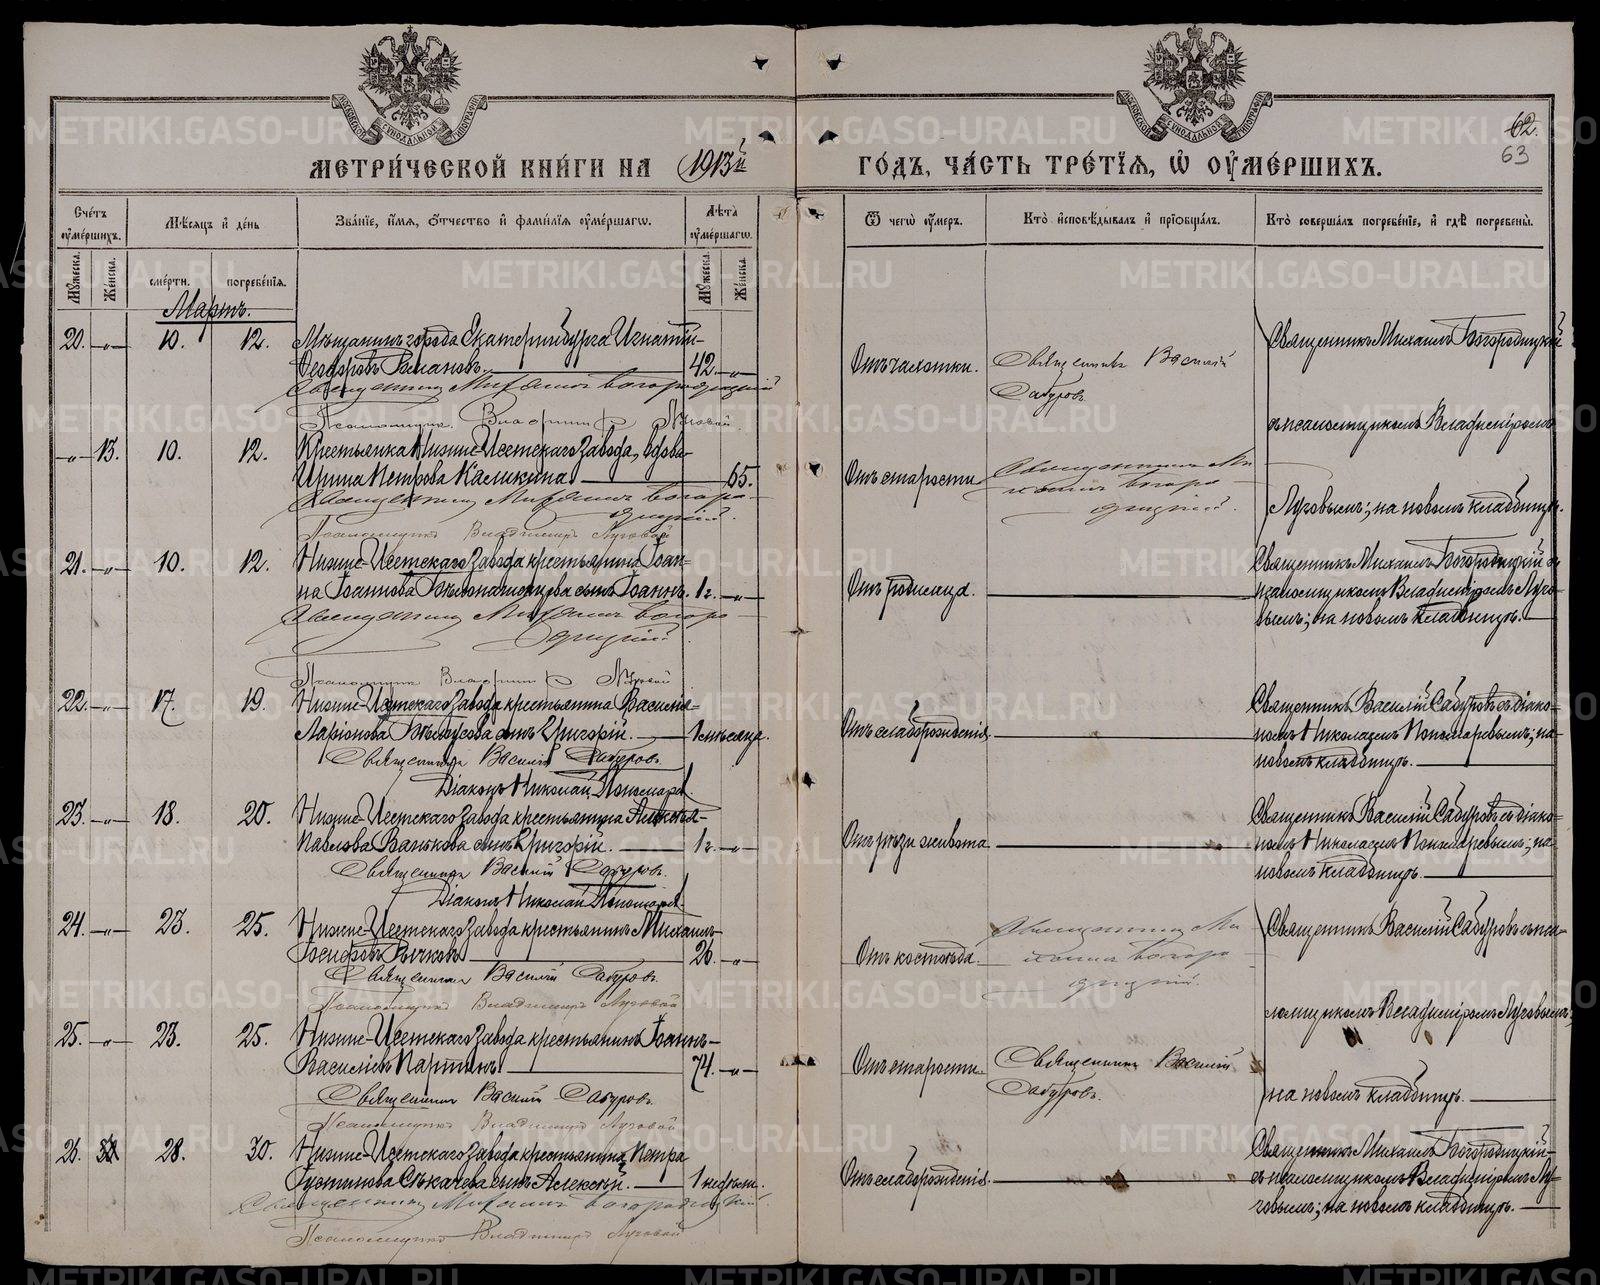 МЕТРИ́ЧЕСКОЙ КНИ́ГИ НА 1913й ГО́ДЪ, ЧА́СТЬ ТРЕ́ТЇѦ, Ѡ҆ ОУ҆МЕ́РШИХЪ.
62.
63
Сче́тъ оу҆ме́ршихъ.
Мѣ́сѧцъ и҆ де́нь
Зва́нїе, и҆́мѧ, ѻ҆́тчество и҆ фами́лїѧ оу҆ме́ршагѡ.
Лѣ́та оу҆ме́ршагѡ.
Ѿ чегѡ̀ оу҆́меръ.
Кто̀ и҆сповѣ́дывалъ и҆ прїѡбща́лъ.
Кто̀ соверша́лъ погребе́нїе, и҆ гдѣ̀ погребены̀.
Мꙋ́жеска.
Же́нска.
сме́рти.
погребе́нїѧ.
Мꙋ́жеска.
Же́нска.
Мартъ.
20. —„— 10. 12. Мѣщанинъ города Екатеринбурга Игнатій
Ѳеодоровъ Романовъ. 42. —„—
Священникъ Михаилъ Богородицкій
Псаломщикъ Владиміръ Луговой.
Отъ чахотки.
Священникъ Василій
Сабуровъ.
Священникъ Михаилъ Богородицкій
съ псаломщикомъ Владиміромъ
Луговымъ; на новомъ кладбищѣ.
—„— 13. 10. 12. Крестьянка Нижне-Исетскаго завода, вдова
Ирина Петрова Каликина 65.
Священникъ Михаилъ Богоро-
дицкій.
Псаломщикъ Владиміръ Луговой
Отъ старости
Священникъ Ми-
хаилъ Богоро-
дицкій.
21. —„— 10. 12. Нижне-Исетскаго завода крестьянина Іоан-
на Іоаннова сынъ Іоаннъ. 1 г. —„—
Священникъ Михаилъ Богоро-
дицкій.
Псаломщикъ Владиміръ Луговой
Отъ родимца.
Священникъ Михаилъ Богородицкій съ
псаломщикомъ Владиміромъ Луго-
вымъ; на новомъ кладбищѣ.
22. —„— 17. 19. Нижне-Исетскаго завода крестьянина Василія
Ларіонова сынъ Григорій. 1 мѣсяца.
Священникъ Василій Сабуровъ.
Діаконъ Николай Пономарев.
Отъ слаборожденія
Священникъ Василій Сабуровъ съ діако-
номъ Николаемъ Пономаревымъ; на
новомъ кладбищѣ.
23. —„— 18. 20. Нижне-Исетскаго завода крестьянина
Павлова Ванькова сынъ Григорій. 1 г. —„—
Священникъ Василій Сабуровъ.
Діаконъ Николай Пономарев.
Отъ рѣзи живота
Священникъ Василій Сабуровъ съ діако-
номъ Николаемъ Пономаревымъ; на
новомъ кладбищѣ.
24. —„— 23. 25. Нижне-Исетскаго завода крестьянинъ Михаилъ
Іосифовъ Бычковъ 26. —„—
Священникъ Василій Сабуровъ
Псаломщикъ Владиміръ Луговой
Отъ костоѣда.
Священникъ Ми-
хаилъ Богоро-
дицкій.
Священникъ Василій Сабуровъ съ пса-
ломщикомъ Владиміромъ Луговымъ;
на новомъ кладбищѣ.
25. —„— 23. 25. Нижне-Исетскаго завода крестьянинъ Іоаннъ
Василіевъ Партинъ 74. —„—
Священникъ Василій Сабуровъ.
Псаломщикъ Владиміръ Луговой
Отъ старости.
Священникъ Василій
Сабуровъ.
26. 28. 30. Нижне-Исетскаго завода крестьянина Петра
Іустинова Сѣкачева сынъ Алексѣй. 1 недѣли.
Священникъ Михаилъ Богородицкій.
Псаломщикъ Владиміръ Луговой
Отъ слаборожденія
Священникъ Михаилъ Богородицкій
съ псаломщикомъ Владиміромъ Лу-
говымъ; на новомъ кладбищѣ.